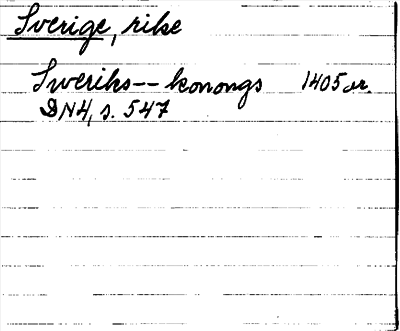 Sverige, rike
Sweriks -- konongs 1405 or.
DN4, s. 547